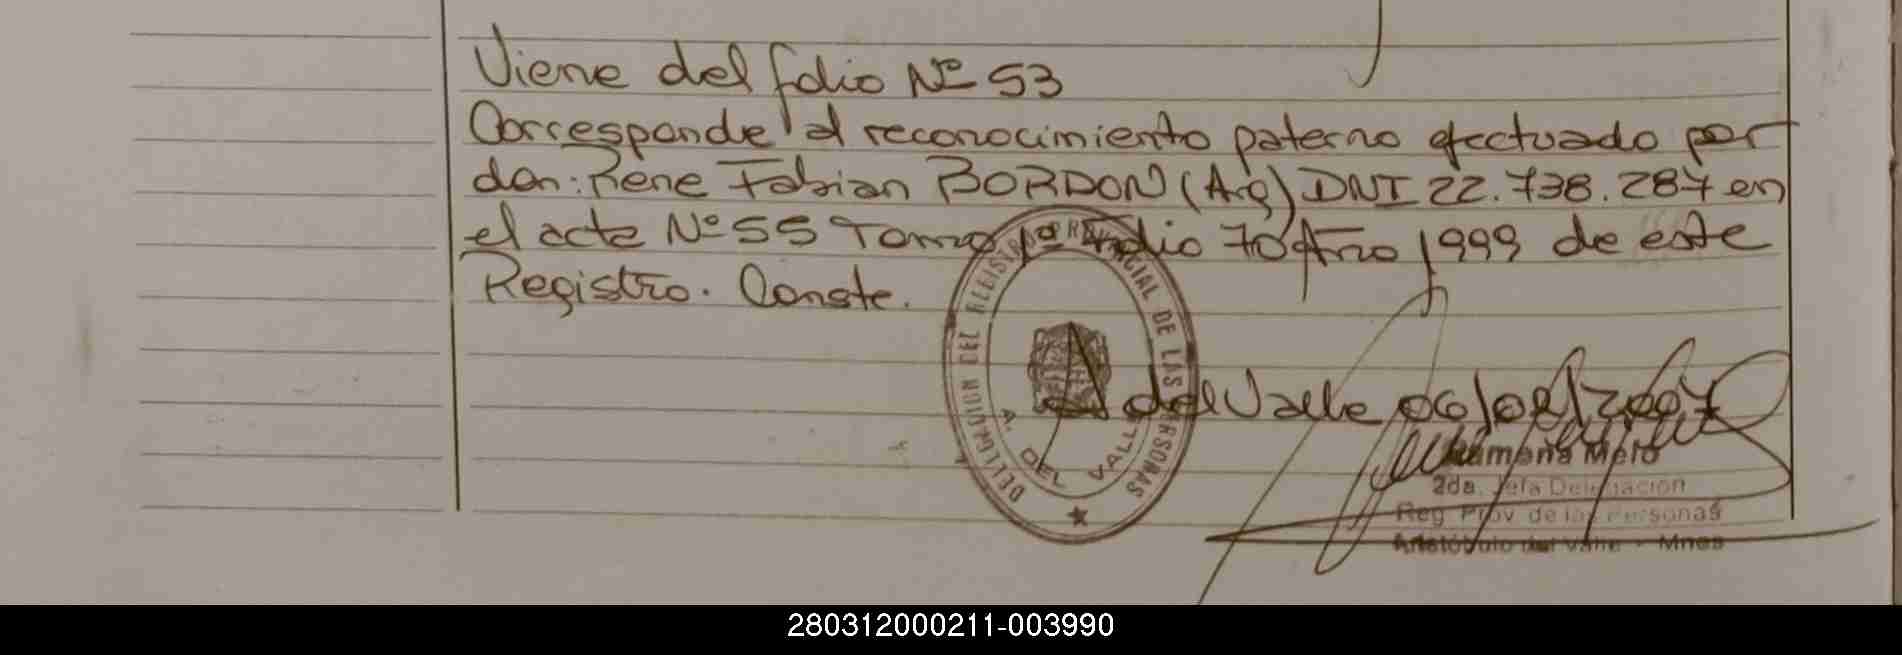 Viene del folio Nº 53
Corresponde al reconocimiento paterno efectuado por
don: Rene Fabian BORDON (Arg) DNI 22.738.287 en
el acta Nº 55 Tomo 1º Folio 70 Año 1999 de este
Registro. Conste.
DELEGACION DEL REGISTRO PROVINCIAL DE LAS PERSONAS
A. DEL VALLE
A. del Valle 06/02/2007
Melo
2da. Jefa Delegación
Reg. Prov. de las Personas
Aristóbulo del Valle - Mnes
280312000211-003990